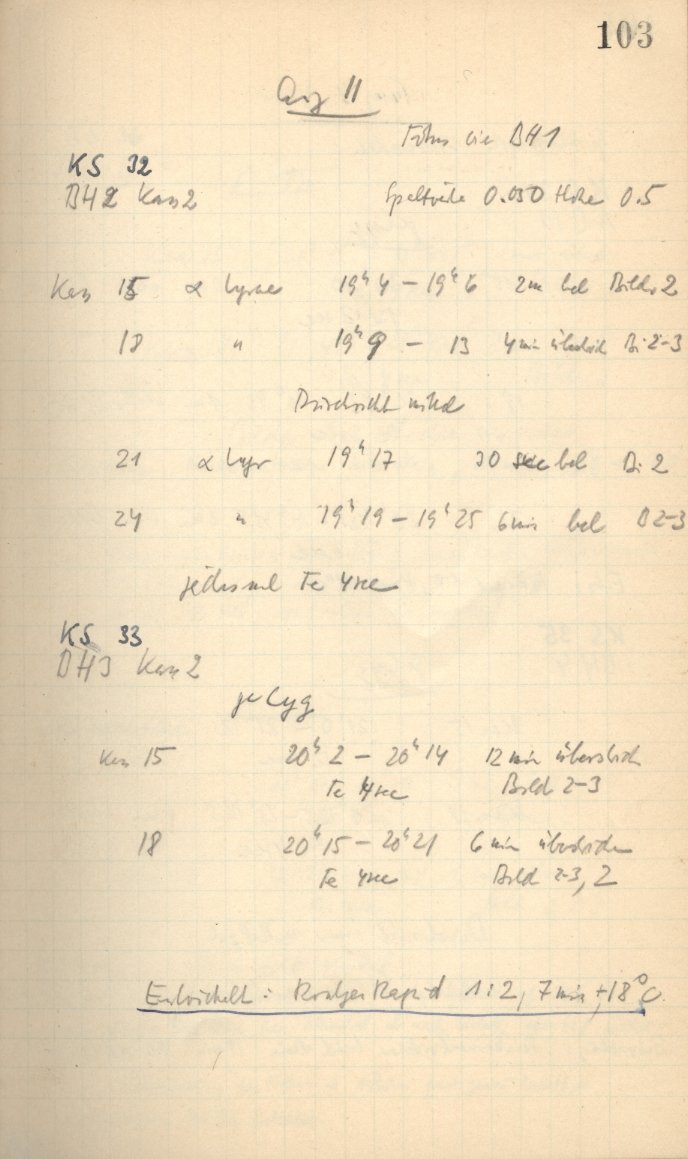 103
Aug 11
Fokus wie BH1
KS 32
BH2 Kas 2 Spaltweite 0.030 Höhe 0.5
Kas 15 α Lyrae 19h 4 – 19h 6 2m bel Bild 2
18 " 19h 9 – 13 4 min überbel Bi 2-3
Durchsicht mittel
21 α Lyr 19h 17 30 sec bel Bi 2
24 " 19h 19 – 19h 25 6 min bel B 2-3
jedesmal Te 4 sec
KS 33
BH3 Kas 2
γ Cyg
Kas 15 20h 2 – 20h 14 12 min
Te 4 sec Bild 2-3
18 20h 15 – 20h 21 6 min
Te 4 sec Bild 2-3, 2
Entwickelt: Rapid 1:2, 7 min +18°C.